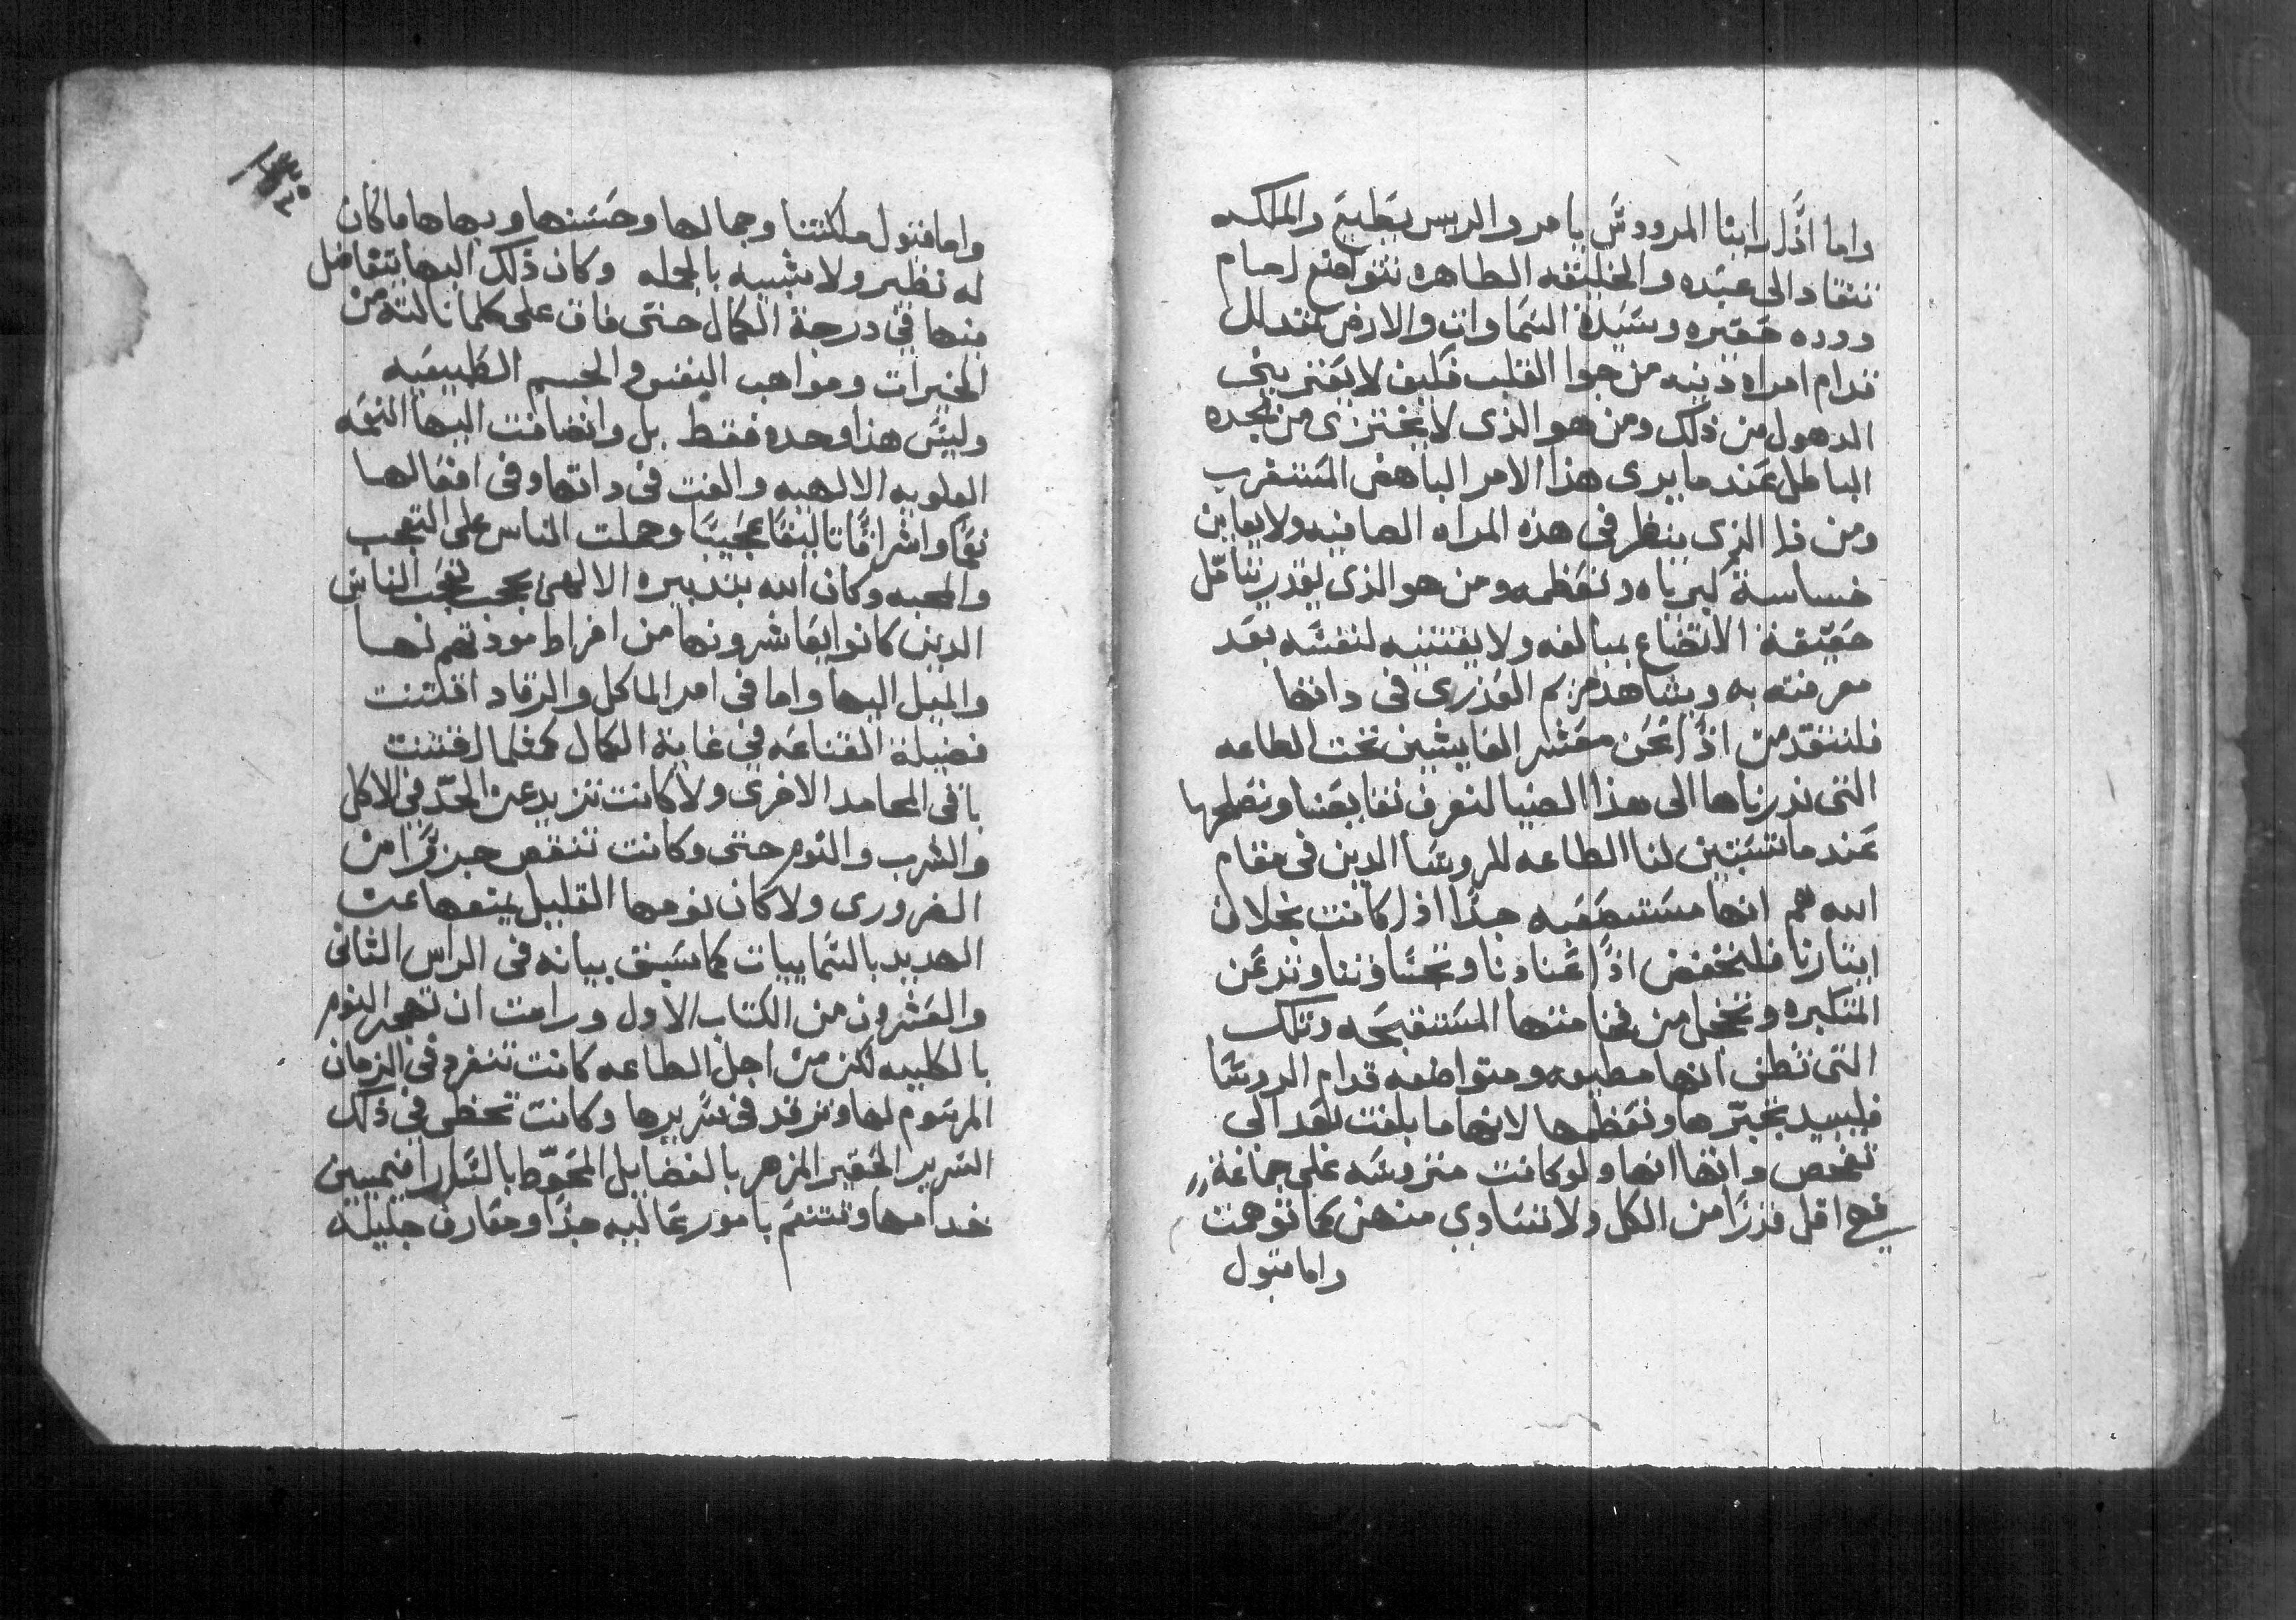 واما اذًا راينا المرووسَ يامر والريس يَطيعَ والملكه
تنقاد الى عبَده والخليقه الطاهره تتواضع امام
دوده حَقيره وسَيدة السَماوات والارض تتدلل
قدام امراه دنيه من جوا القلب فكيف لا يَعتريني
الدهول من ذلك ومن هو الذى لا يختزى من مجده
الباطل عَند ما يرى هذا الامر الباهض المَستغرب
ومن ذا الذى ينظر فى هذه المراه الصافيه ولا يعاين
خساسة كبرياه وتعَظمه ومن هو الذى يقدر يتامّل
حَقيقة الاتضاع بمبالغه ولا يقتنيه لنفسَه بعَد
معرفته به ويشاهد مريم العَذرى فى داتها
فلنتقدّمن اذًا نحَن معَشر العَايشين تحت الطاعه
التى ندرناها الى هذا الضيا لنعرف نقايصَنا ونصَلحها
عَند ما تسَتبين لنا الطاعه للروسَا الدين فى مقام
الله هم انها مستصعَبه جدًا اذا كانت بخلاف
ايتارنا فلنخفض اذًا عَنادنا ونحسَا ونذعَن
المتكبره وتخجل من فخامتها المسَتقبحَه وتلك
التى تظن انها مطيعه ومتواضعه قدام الروسَا
فليبيد تخبّرها وتعَظمها لانها ما بلغت بعَد الى
تفحص داتها انها ولو كانت متروسَه على جماعة
فهى اقل قدرًا من الكل ولا تتسَاوى منهن كما توهمت
واما قبول
واما قبول ملكتنا وجمالها وحسَنها وبهاها ما كان
له نظير ولا شبيه بالجمله وكان ذلك البها يتفاضل
منها في درجة الكمال حتى فاق على كلما نالته من
الخيرات ومواهب النفس والجسم الطبيعَيه
وليسَ هذا وحده فقط بل وانضافت اليها النعَمه
العلويه الالهيه والفت فى داتها وفى افعَالها
نعَمًا واشراقًا تاليفًا عجَيبًا وحملت الناس على التعجب
والمحبه وكان الله بتدبيره الالهى يحجب تعجَب الناس
الدين كانوا يعَاشرونها من افراط مودتهم لها
والميل اليها واما فى امر الماكل والرقاد اقتنت
فضيلة القناعَه في غاية الكمال كمثلما اقتنت
باقى المحامد الاخرى ولا كانت تزيد عن الحدّ في الاكل
والشرب والنوم حتى وكانت تنقص جزوًا من
الضرورى ولا كان نومها القليل يمنعها عن
الهديد بالسَماييات كما سَبق بيانه فى الراس الثانى
والعَشرون من الكتاب الاول ورامت ان تهجر النوم
بالكليه لكن من اجل الطاعه كانت تنفرد في الزمان
المرسَوم لها وترقد فى سَريرها وكانت تحظى في ذلك
السَرير الحَقير المزهر بالفضايل المحَوّط بالسَارافيميين
خدامها وتتنعَم بامور عَاليه جدًا ومعَارف جليلة